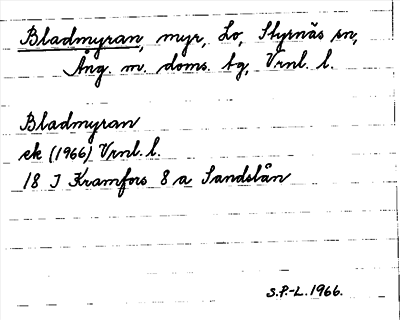 Bladmyran, myr, Lo, Styrnäs sn,
Ång. m. doms. tg, Vrnl. l.
Bladmyran
ek (1966) Vrnl. l.
18 J Kramfors 8 a Sandslån
S.P.-L. 1966.